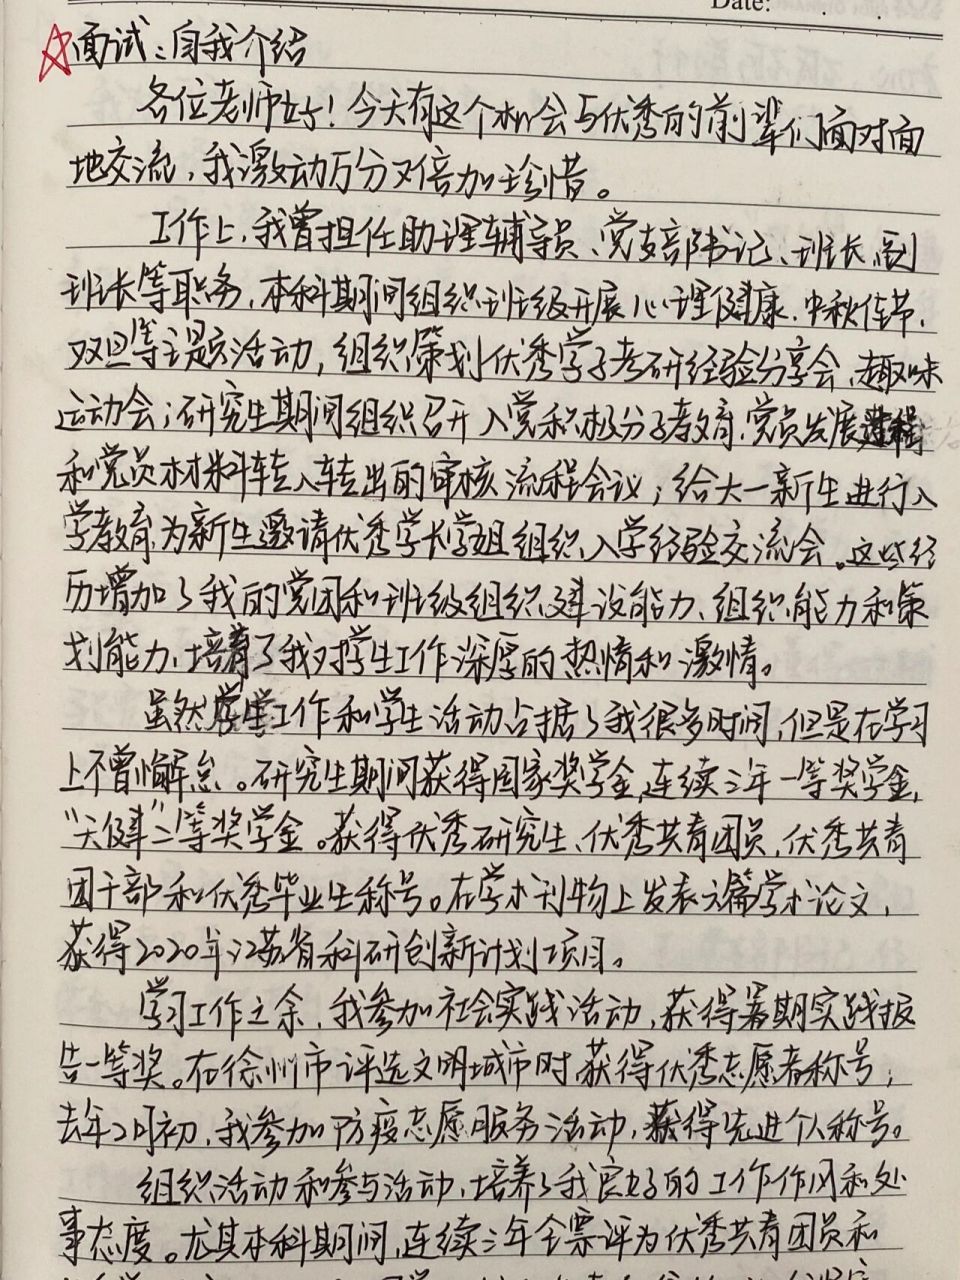 Date:
面试：自我介绍
各位老师好！今天有这个机会与优秀的前辈们面对面
地交流，我激动万分又倍加珍惜。
工作上，我曾担任助理辅导员、党支部书记、班长、副
班长等职务，本科期间组织班级开展心理健康、中秋佳节、
双旦等主题活动，组织策划优秀学子考研经验分享会、趣味
运动会；研究生期间组织召开入党积极分子教育、党员发展进程
和党员材料转入转出的审核流程会议；给大一新生进行入
学教育，为新生邀请优秀学长学姐组织入学经验交流会。这些经
历增加了我的党团和班级组织建设能力、组织能力和策
划能力，培育了我对学生工作深厚的热情和激情。
虽然学生工作和学生活动占据了我很多时间，但是在学习
上不曾懈怠。研究生期间获得国家奖学金，连续三年一等奖学金，
“天健”二等奖学金。获得优秀研究生、优秀共青团员，优秀共青
团干部和优秀毕业生称号。在学术刊物上发表六篇学术论文，
获得2020年江苏省科研创新计划项目。
学习工作之余，我参加社会实践活动，获得暑期实践报
告一等奖。在徐州市评选文明城市时获得优秀志愿者称号；
去年2月初，我参加防疫志愿服务活动，获得先进个人称号。
组织活动和参与活动，培养了我良好的工作作风和处
事态度。尤其本科期间，连续三年全票评为优秀共青团员和